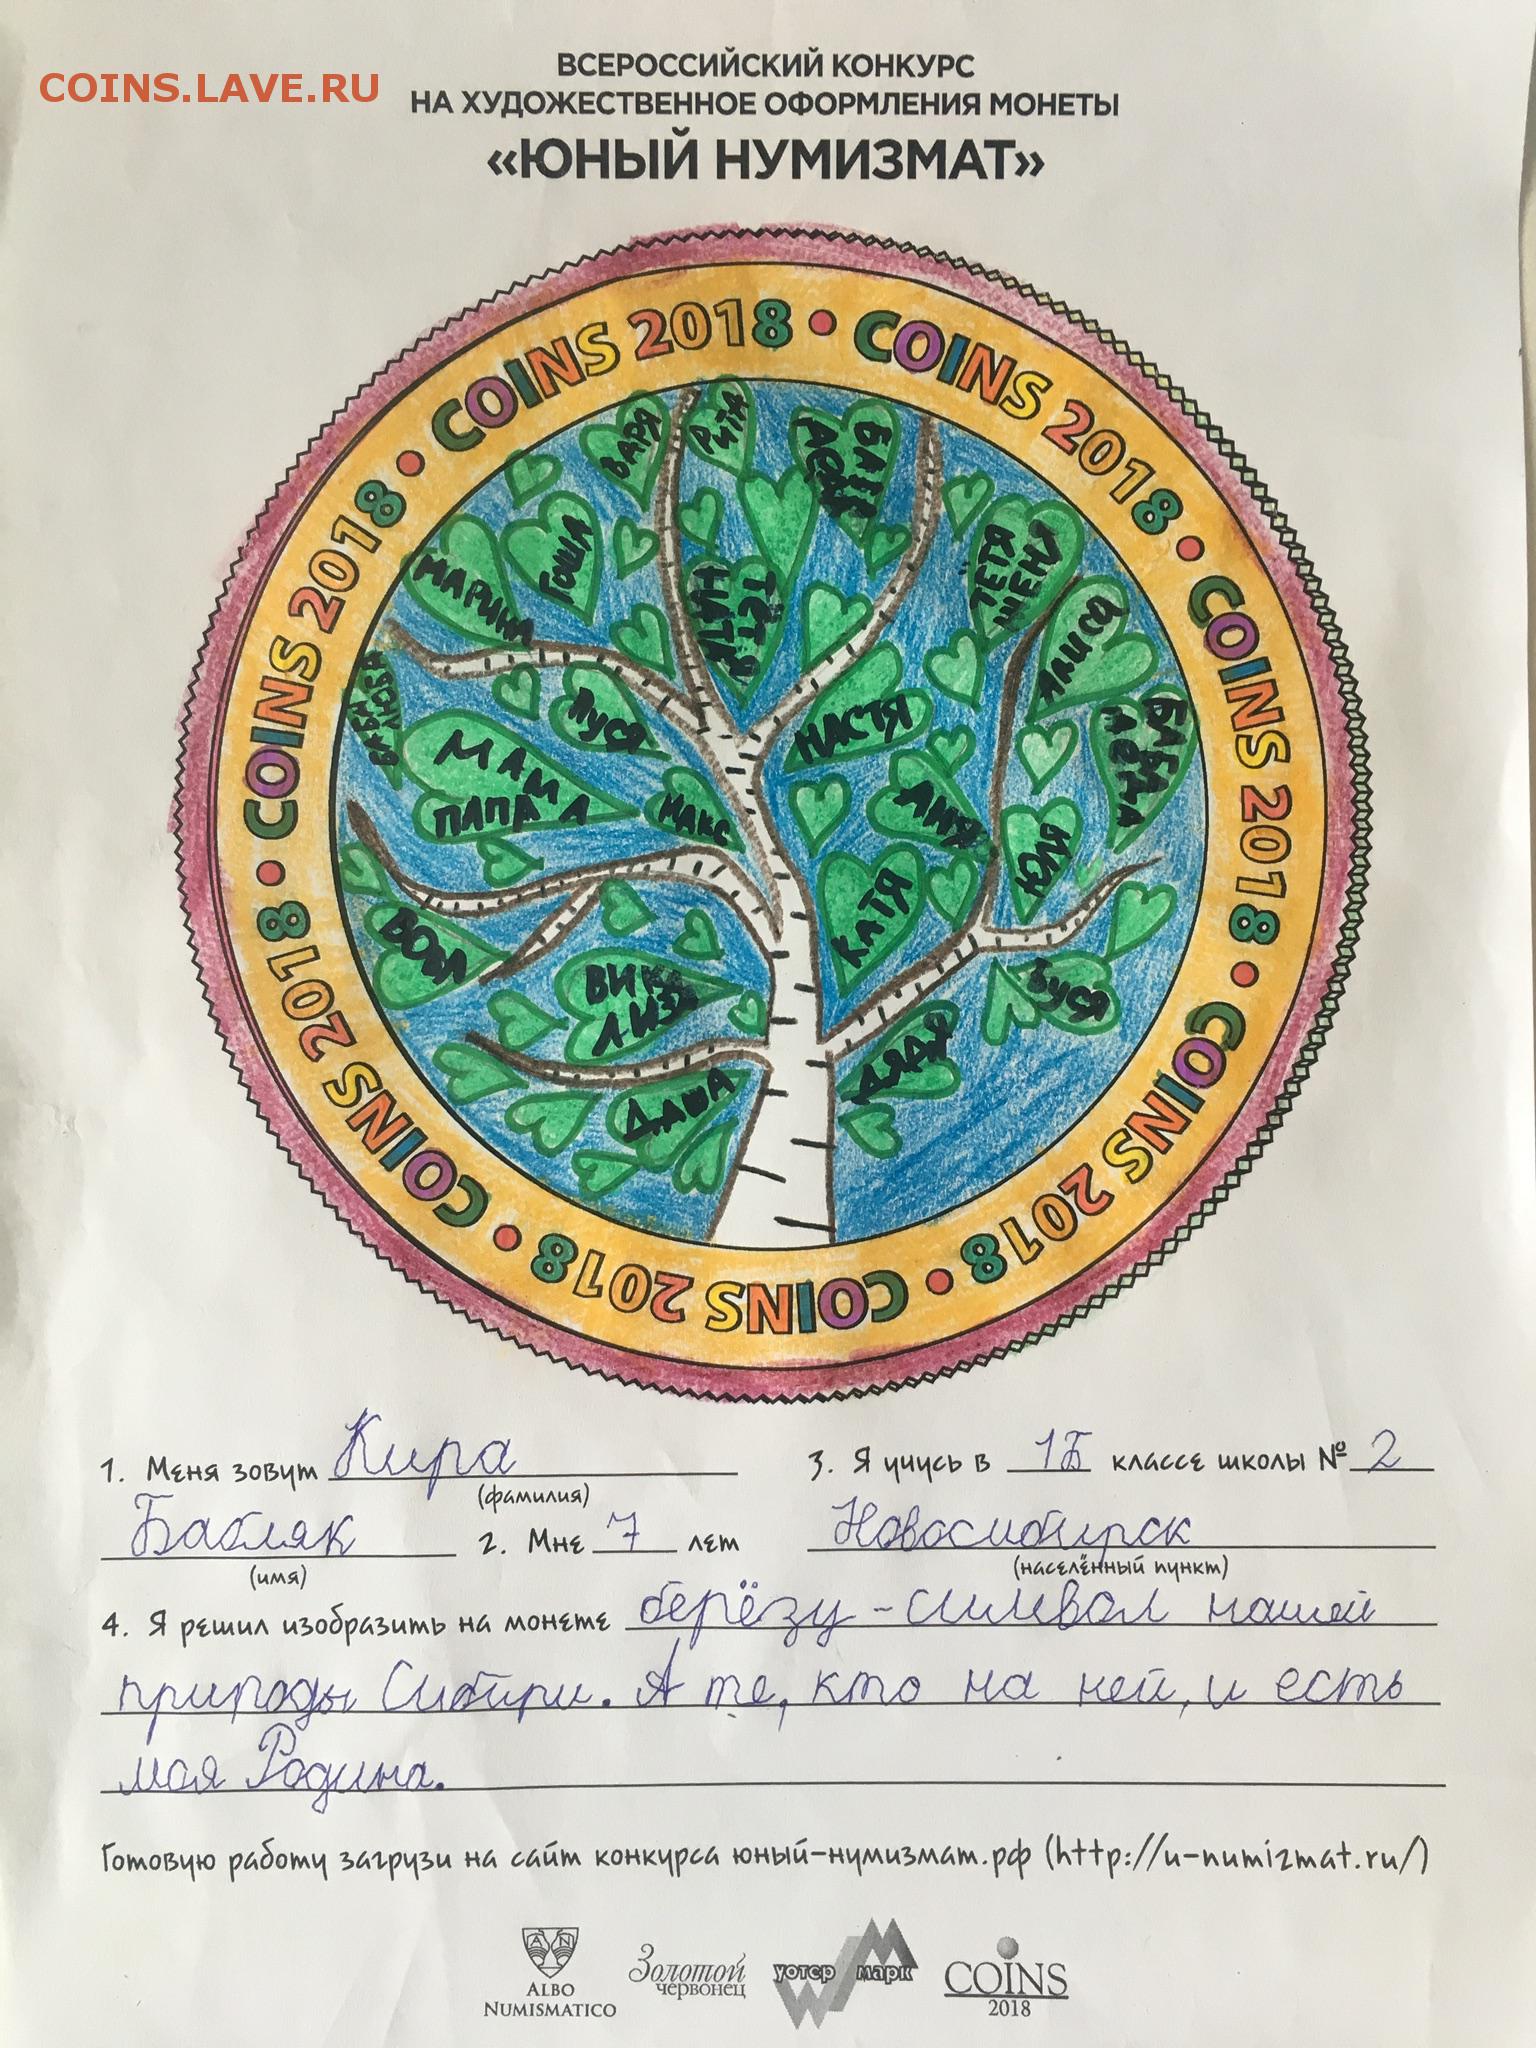 COINS.LAVE.RU
ВСЕРОССИЙСКИЙ КОНКУРС
НА ХУДОЖЕСТВЕННОЕ ОФОРМЛЕНИЯ МОНЕТЫ
«ЮНЫЙ НУМИЗМАТ»
COINS 2018 • COINS 2018 • COINS 2018 • COINS 2018 • COINS 2018 • COINS 2018 • COINS 2018 • COINS 2018 •
ВАРЯ
РИТА
МАРИНА
ГОША
ТЁТЯ
ТЕТЯ
ЖЕНЯ
АЛИСА
БАБА
ЛЮБА
ЛУСЯ
НАСТЯ
БАБА
МАМА
ПАПА
МАКС
АНЯ
ЮЛЯ
ВОВА
КАТЯ
ВИКА
ЛИЗА
БУСЯ
ДАША
ДЯДЯ
1. Меня зовут Кира
(фамилия)
Бабляк
(имя)
2. Мне 7 лет
3. Я учусь в 1Б классе школы № 2
Новосибирск
(населённый пункт)
4. Я решил изобразить на монете берёзу - символ нашей
природы Сибири. А те, кто на ней, и есть
моя Родина.
Готовую работу загрузи на сайт конкурса юный-нумизмат.рф (http://u-numizmat.ru/)
AN
ALBO
NUMISMATICO
Золотой
червонец
уотер марк
COINS
2018